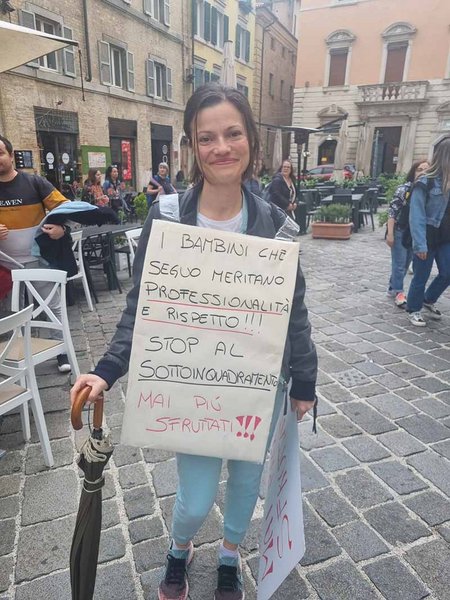 I BAMBINI CHE
SEGUO MERITANO
PROFESSIONALITÀ
E RISPETTO!!!
STOP AL
SOTTOINQUADRAMENTO
MAI PIÚ
SFRUTTATI!!!